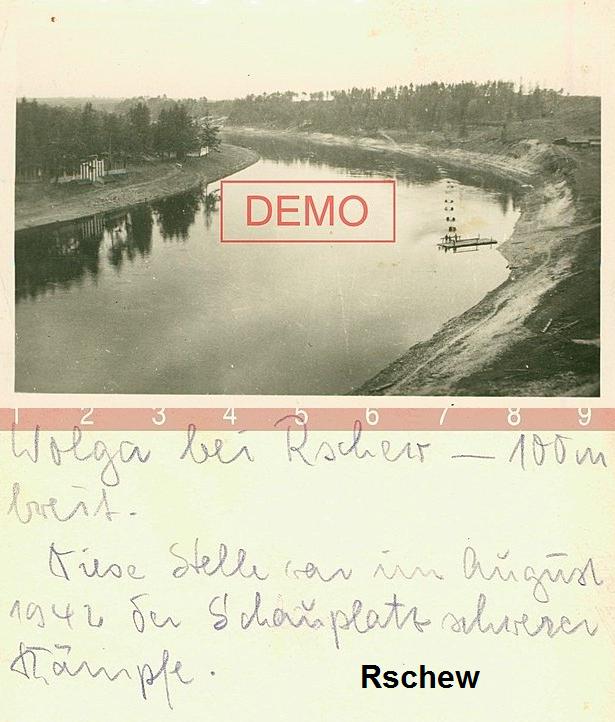 DEMO
1 2 3 4 5 6 7 8 9
Wolga bei Rschew — 100 m
breit.
Diese Stelle war im August
1942 der Schauplatz schwerer
Kämpfe.
Rschew